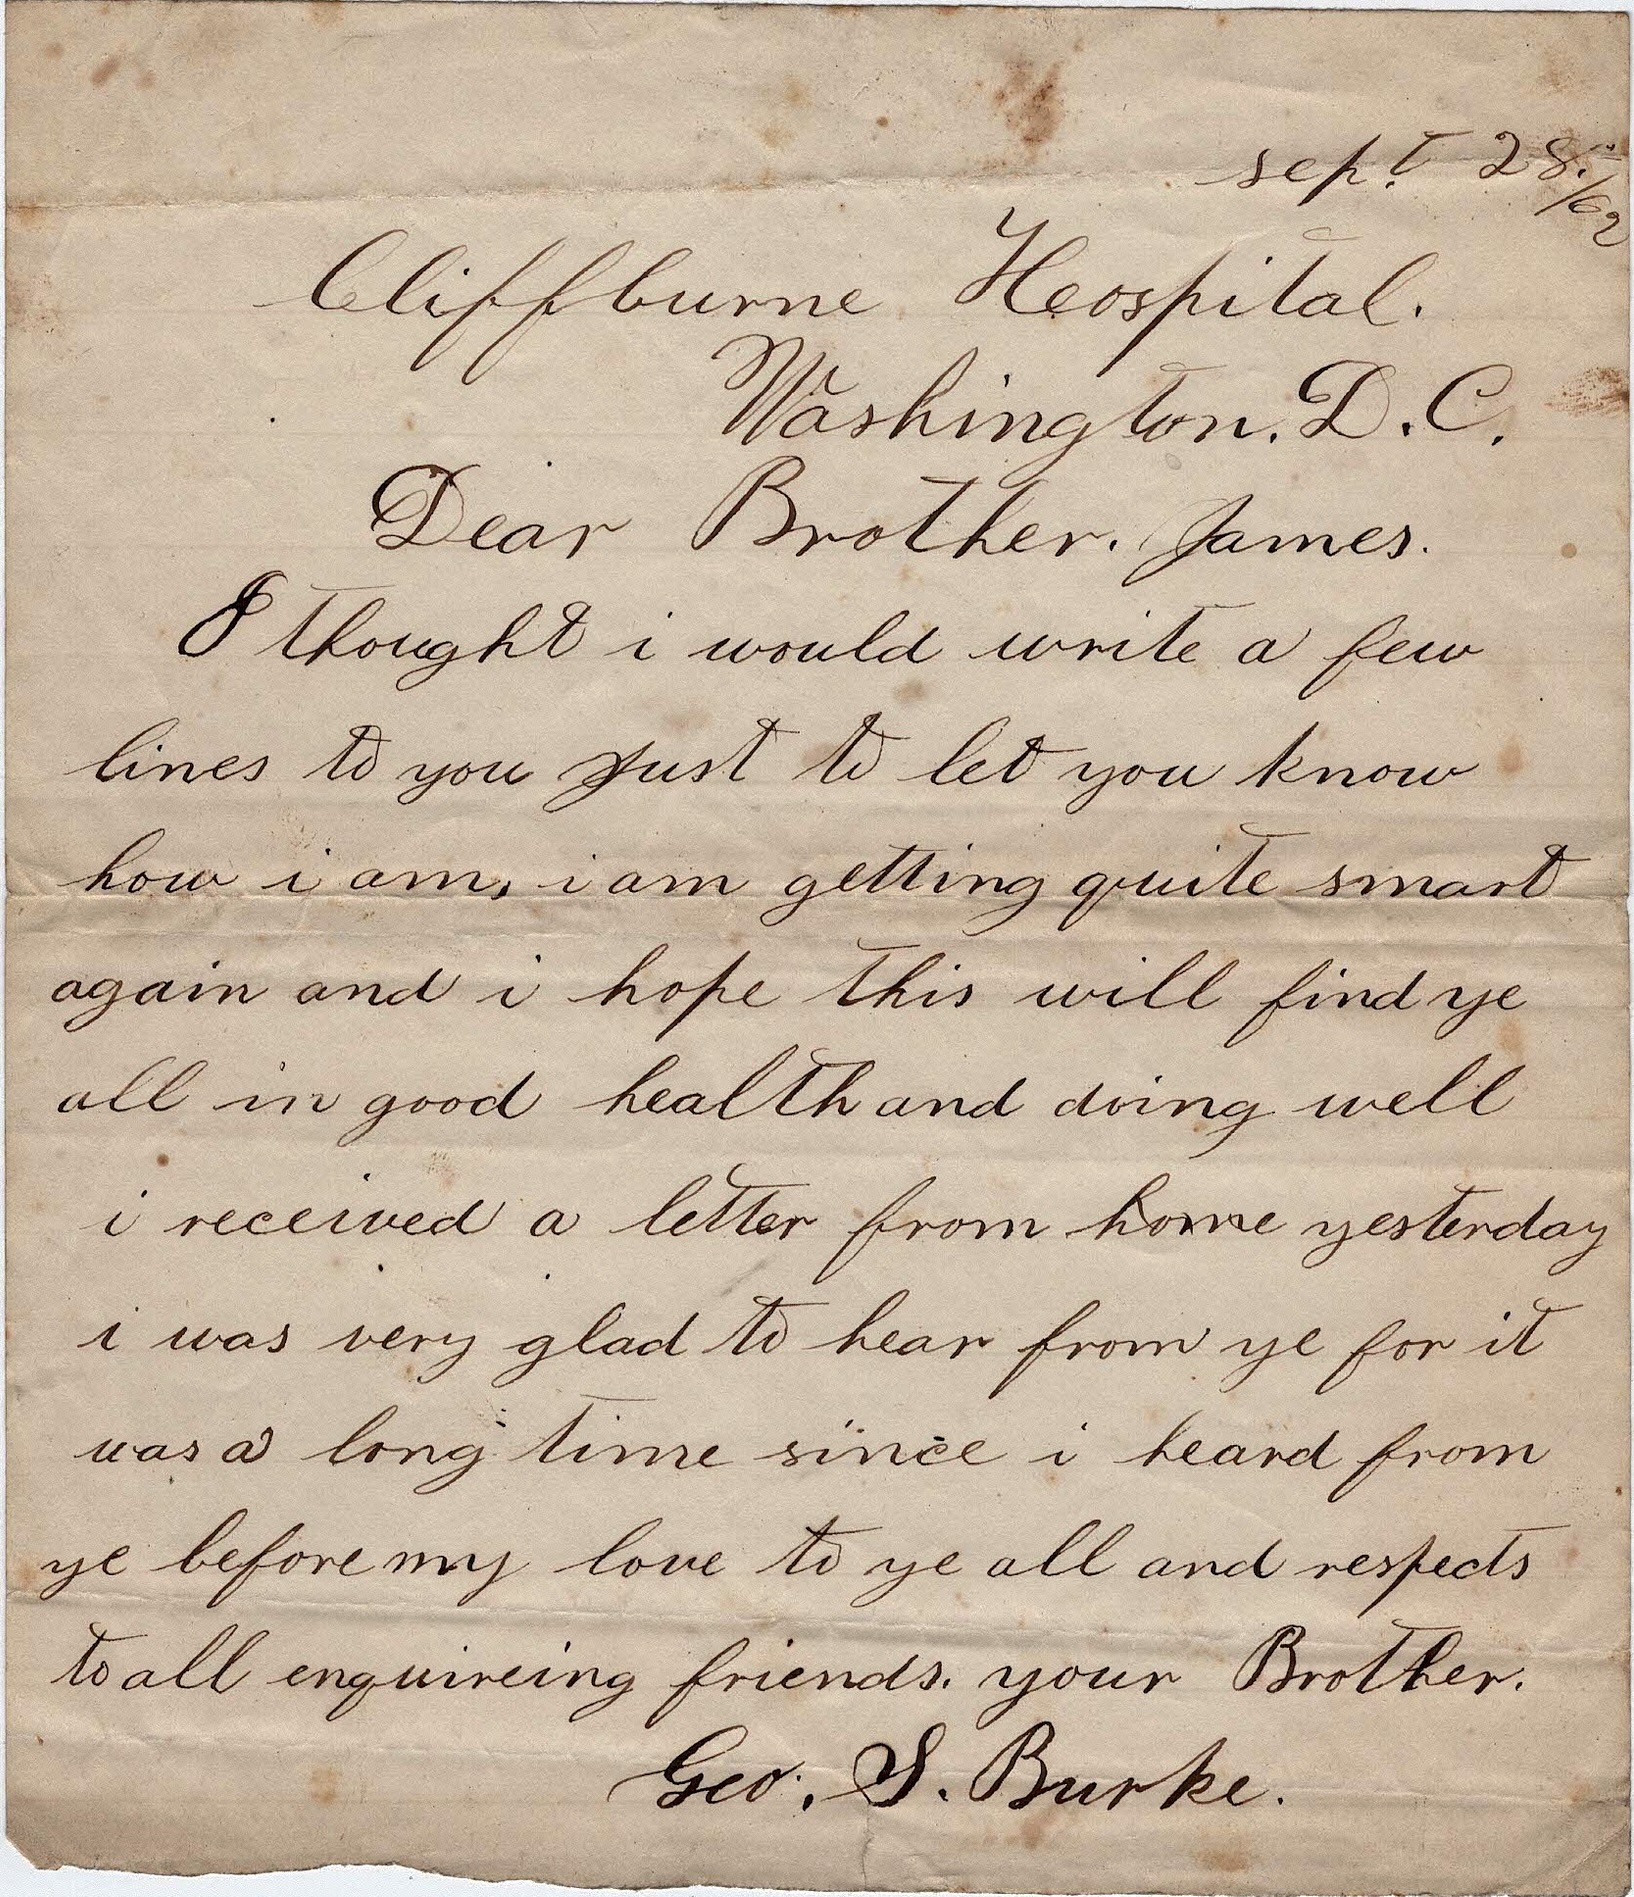 sept 28.
/62
Cliffburne Hospital.
Washington. D. C.
Dear Brother. James.
I thought i would write a few
lines to you Just to let you know
how i am, i am getting quite smart
again and i hope this will find ye
all in good health and doing well
i received a letter from home yesterday
i was very glad to hear from ye for it
was a long time since i heard from
ye before my love to ye all and respects
to all enquireing friends. your Brother.
Geo. S. Burke.